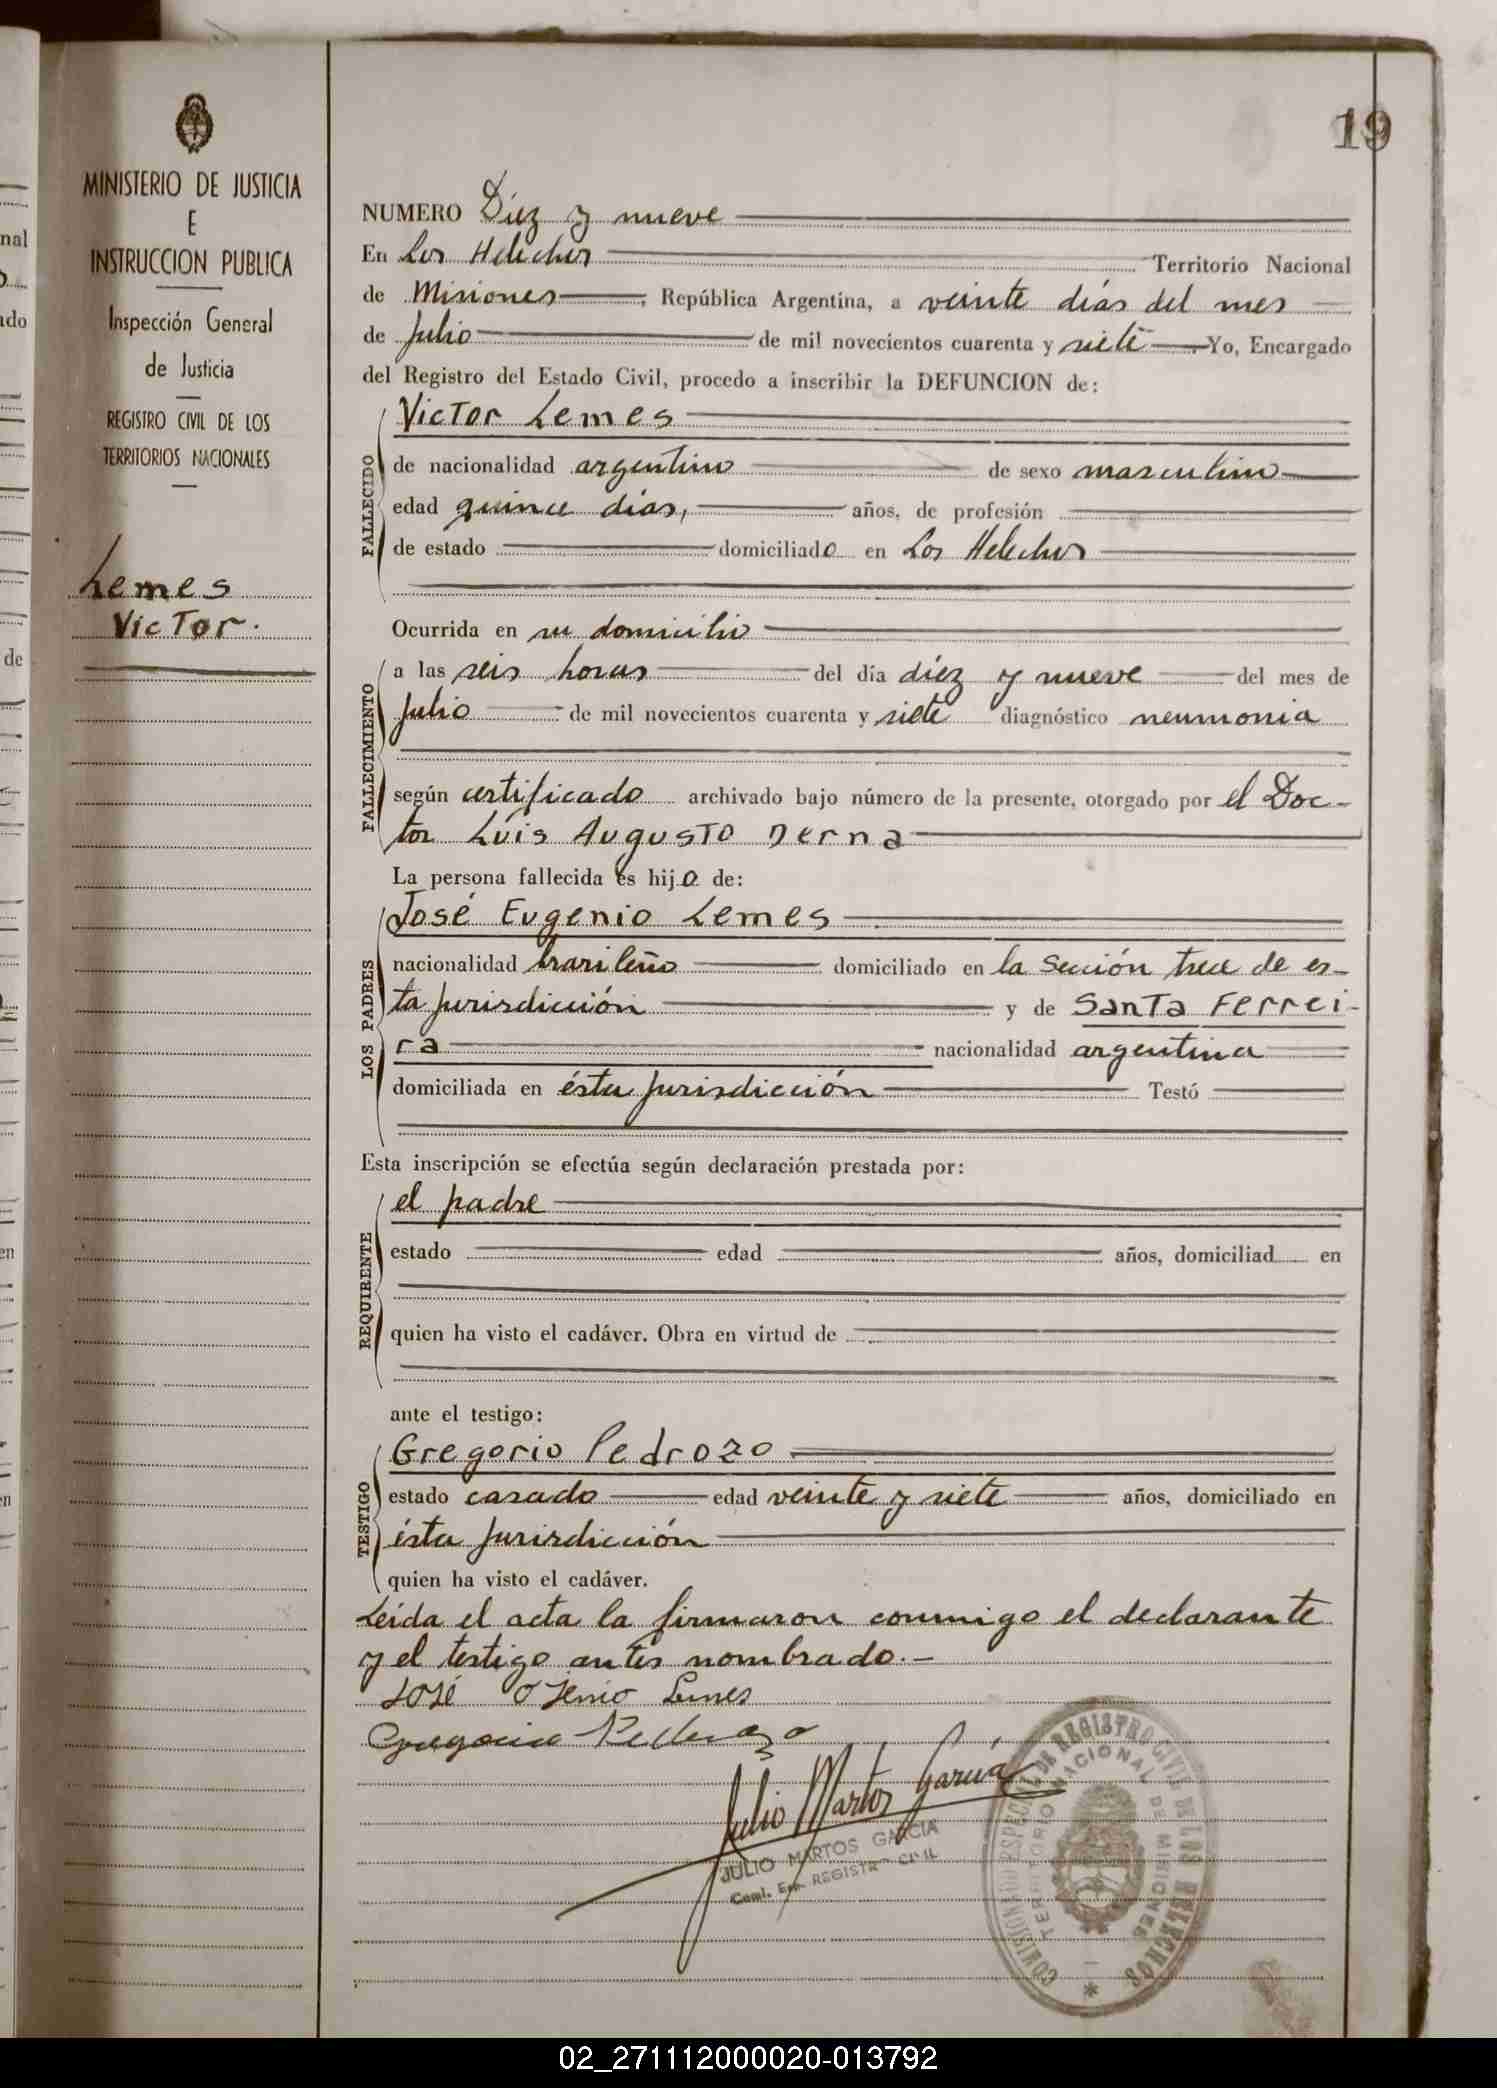 19
MINISTERIO DE JUSTICIA
E
INSTRUCCION PUBLICA
Inspección General
de Justicia
REGISTRO CIVIL DE LOS
TERRITORIOS NACIONALES
Lemes
Victor.
NUMERO Diez y nueve
En Los Helechos Territorio Nacional
de Misiones, República Argentina, a veinte días del mes
de Julio de mil novecientos cuarenta y siete. Yo, Encargado
del Registro del Estado Civil, procedo a inscribir la DEFUNCION de:
FALLECIDO
Victor Lemes
de nacionalidad argentino de sexo masculino
edad quince días, años, de profesión
de estado domiciliado en Los Helechos
Ocurrida en su domicilio
FALLECIMIENTO
a las seis horas del día diez y nueve del mes de
Julio de mil novecientos cuarenta y siete diagnóstico neumonia
según certificado archivado bajo número de la presente, otorgado por el Doc-
tor Luis Augusto Derna
La persona fallecida es hijo de:
LOS PADRES
José Eugenio Lemes
nacionalidad brasileño domiciliado en la Sección trece de es-
ta Jurisdicción y de Santa Ferrei-
ra nacionalidad argentina
domiciliada en ésta Jurisdicción Testó
Esta inscripción se efectúa según declaración prestada por:
REQUIRENTE
el padre
estado edad años, domiciliad en
quien ha visto el cadáver. Obra en virtud de
ante el testigo:
TESTIGO
Gregorio Pedrozo
estado casado edad veinte y siete años, domiciliado en
ésta Jurisdicción
quien ha visto el cadáver.
Leída el acta la firmaron conmigo el declarante
y el testigo antes nombrado.-
José Lemes
Gregorio Pedrozo
Julio Martos García
JULIO MARTOS GARCIA
REGISTRO CIVIL
COMISIONADO ESPECIAL DE REGISTRO CIVIL DE LOS HELECHOS
TERRITORIO NACIONAL DE MISIONES
02_271112000020-013792